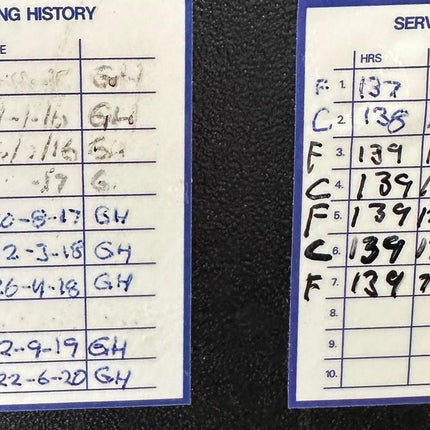 NG HISTORY
E
GH
GH
/7/16 GH
-17 G.
0-8-17 GH
2-3-18 GH
26-4-18 GH
2-9-19 GH
22-6-20 GH
SERV
HRS
F 1. 137
C 2. 138
F 3. 139
C 4. 139
F 5. 139
C 6. 139
F 7. 139
8.
9.
10.